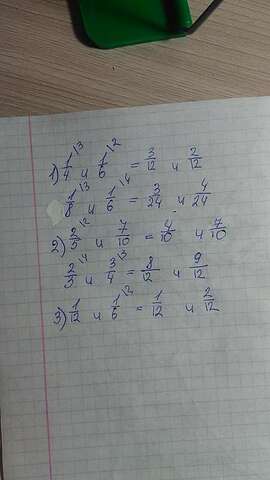 1) 1/4 \3 и 1/6 \2 = 3/12 и 2/12
1/8 \3 и 1/6 \4 = 3/24 и 4/24
2) 2/5 \2 и 7/10 = 4/10 и 7/10
2/3 \4 и 3/4 \3 = 8/12 и 9/12
3) 1/12 и 1/6 \2 = 1/12 и 2/12